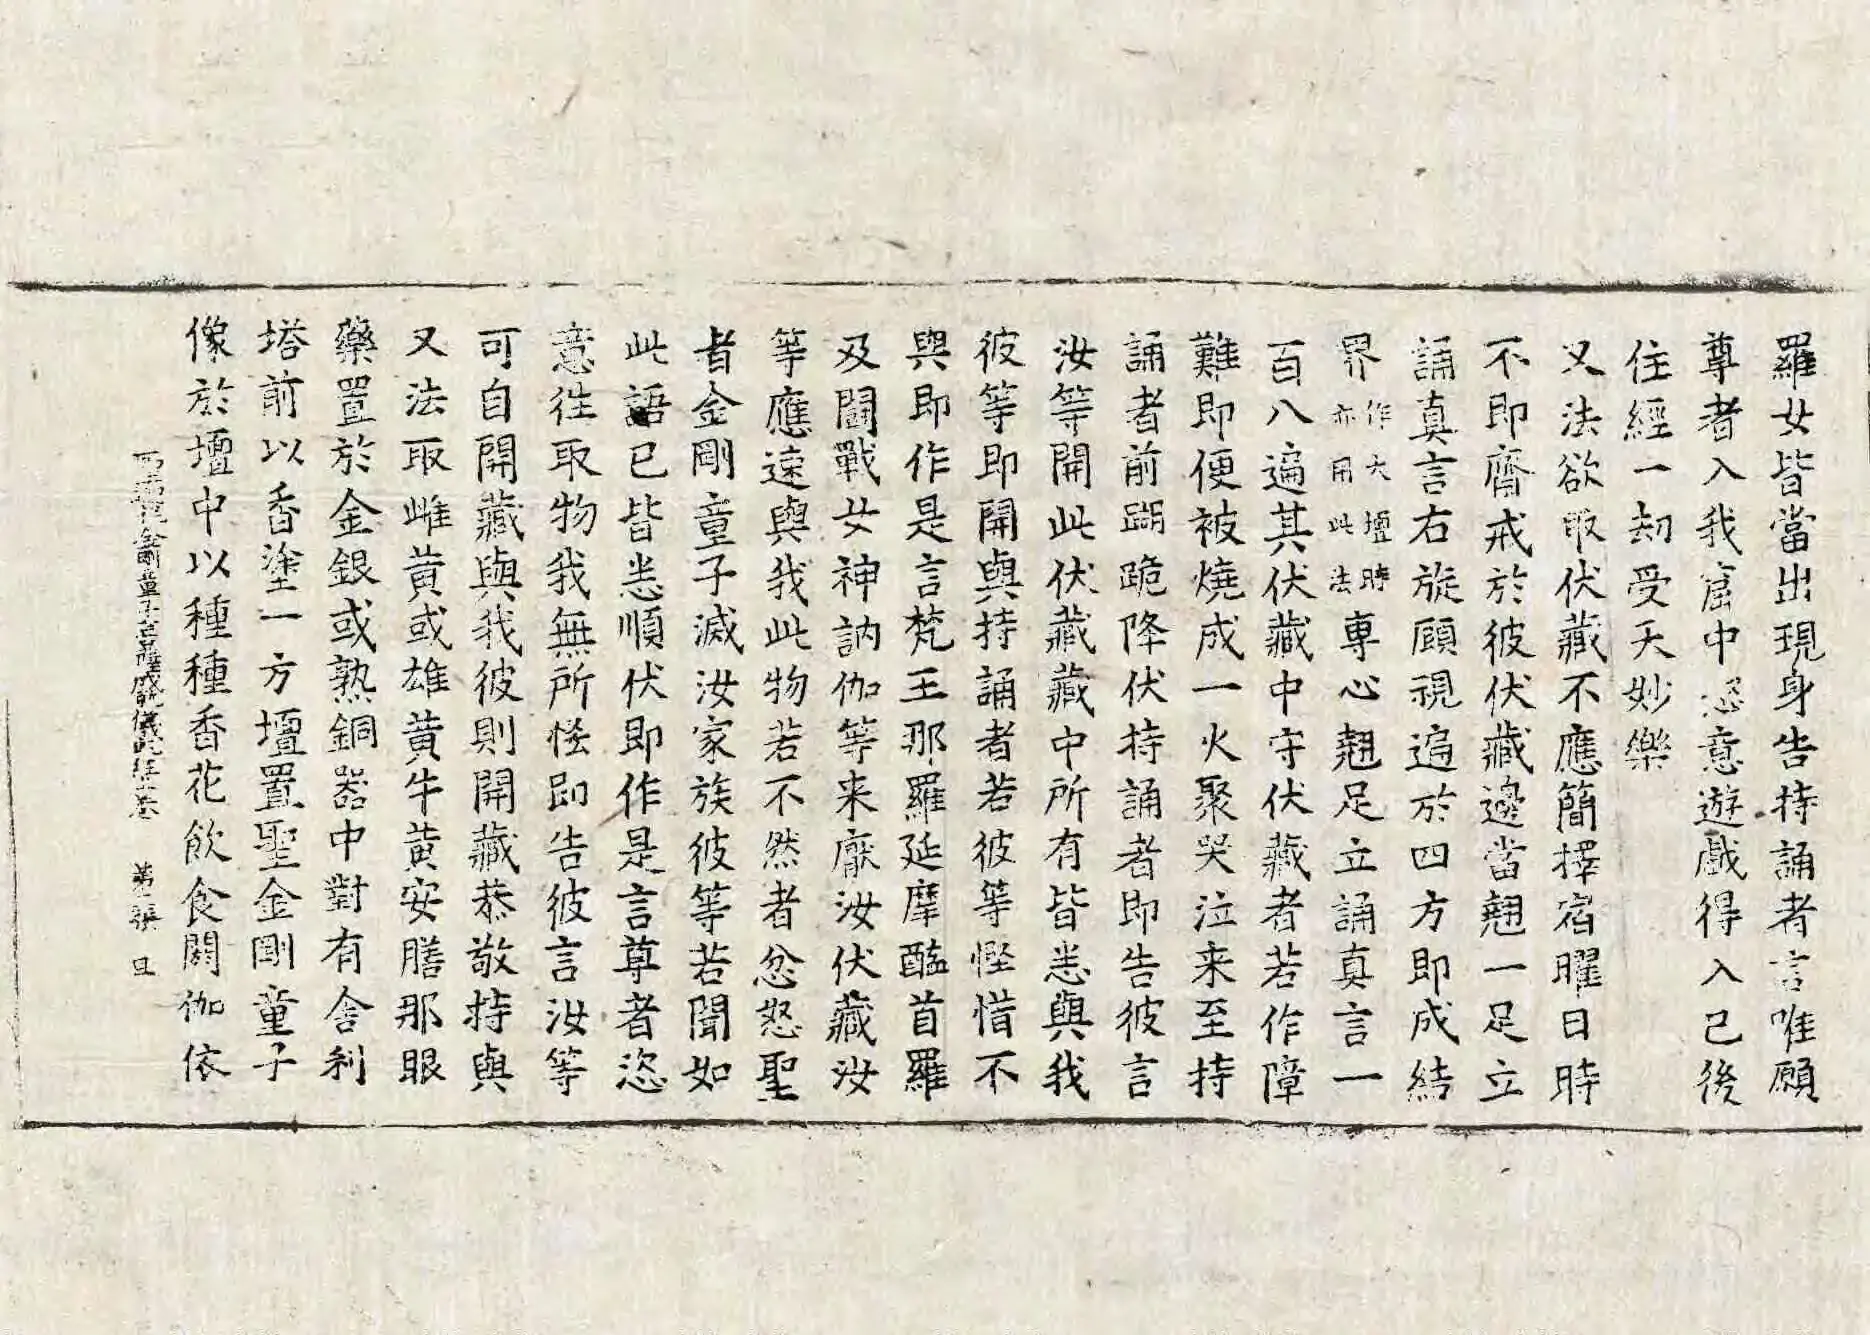 羅女皆當出現身告持誦者言唯願
尊者入我窟中恣意遊戲得入已後
住經一劫受天妙樂
又法欲取伏藏不應簡擇宿曜日時
不即齋戒於彼伏藏邊當翹一足立
誦真言右旋顧視遍於四方即成結
界作大壇時亦用此法專心翹足立誦真言一
百八遍其伏藏中守伏藏者若作障
難即便被燒成一火聚哭泣来至持
誦者前蹦跪降伏持誦者即告彼言
汝等開此伏藏藏中所有皆悉與我
彼等即開與持誦者若彼等慳惜不
與即作是言梵王那羅延摩醯首羅
及鬪戰女神訥伽等来廠汝伏藏汝
等應速與我此物若不然者忿怒聖
者金剛童子滅汝家族彼等若聞如
此語已皆悉順伏即作是言尊者恣
意往取物我無所恡即告彼言汝等
可自開藏與我彼則開藏恭敬持與
又法取雌黄或雄黄牛黄安膳那眼
藥置於金銀或熟銅器中對有舍利
塔前以香塗一方壇置聖金剛童子
像於壇中以種種香花飲食閼伽依
童子菩薩成就儀軌 張